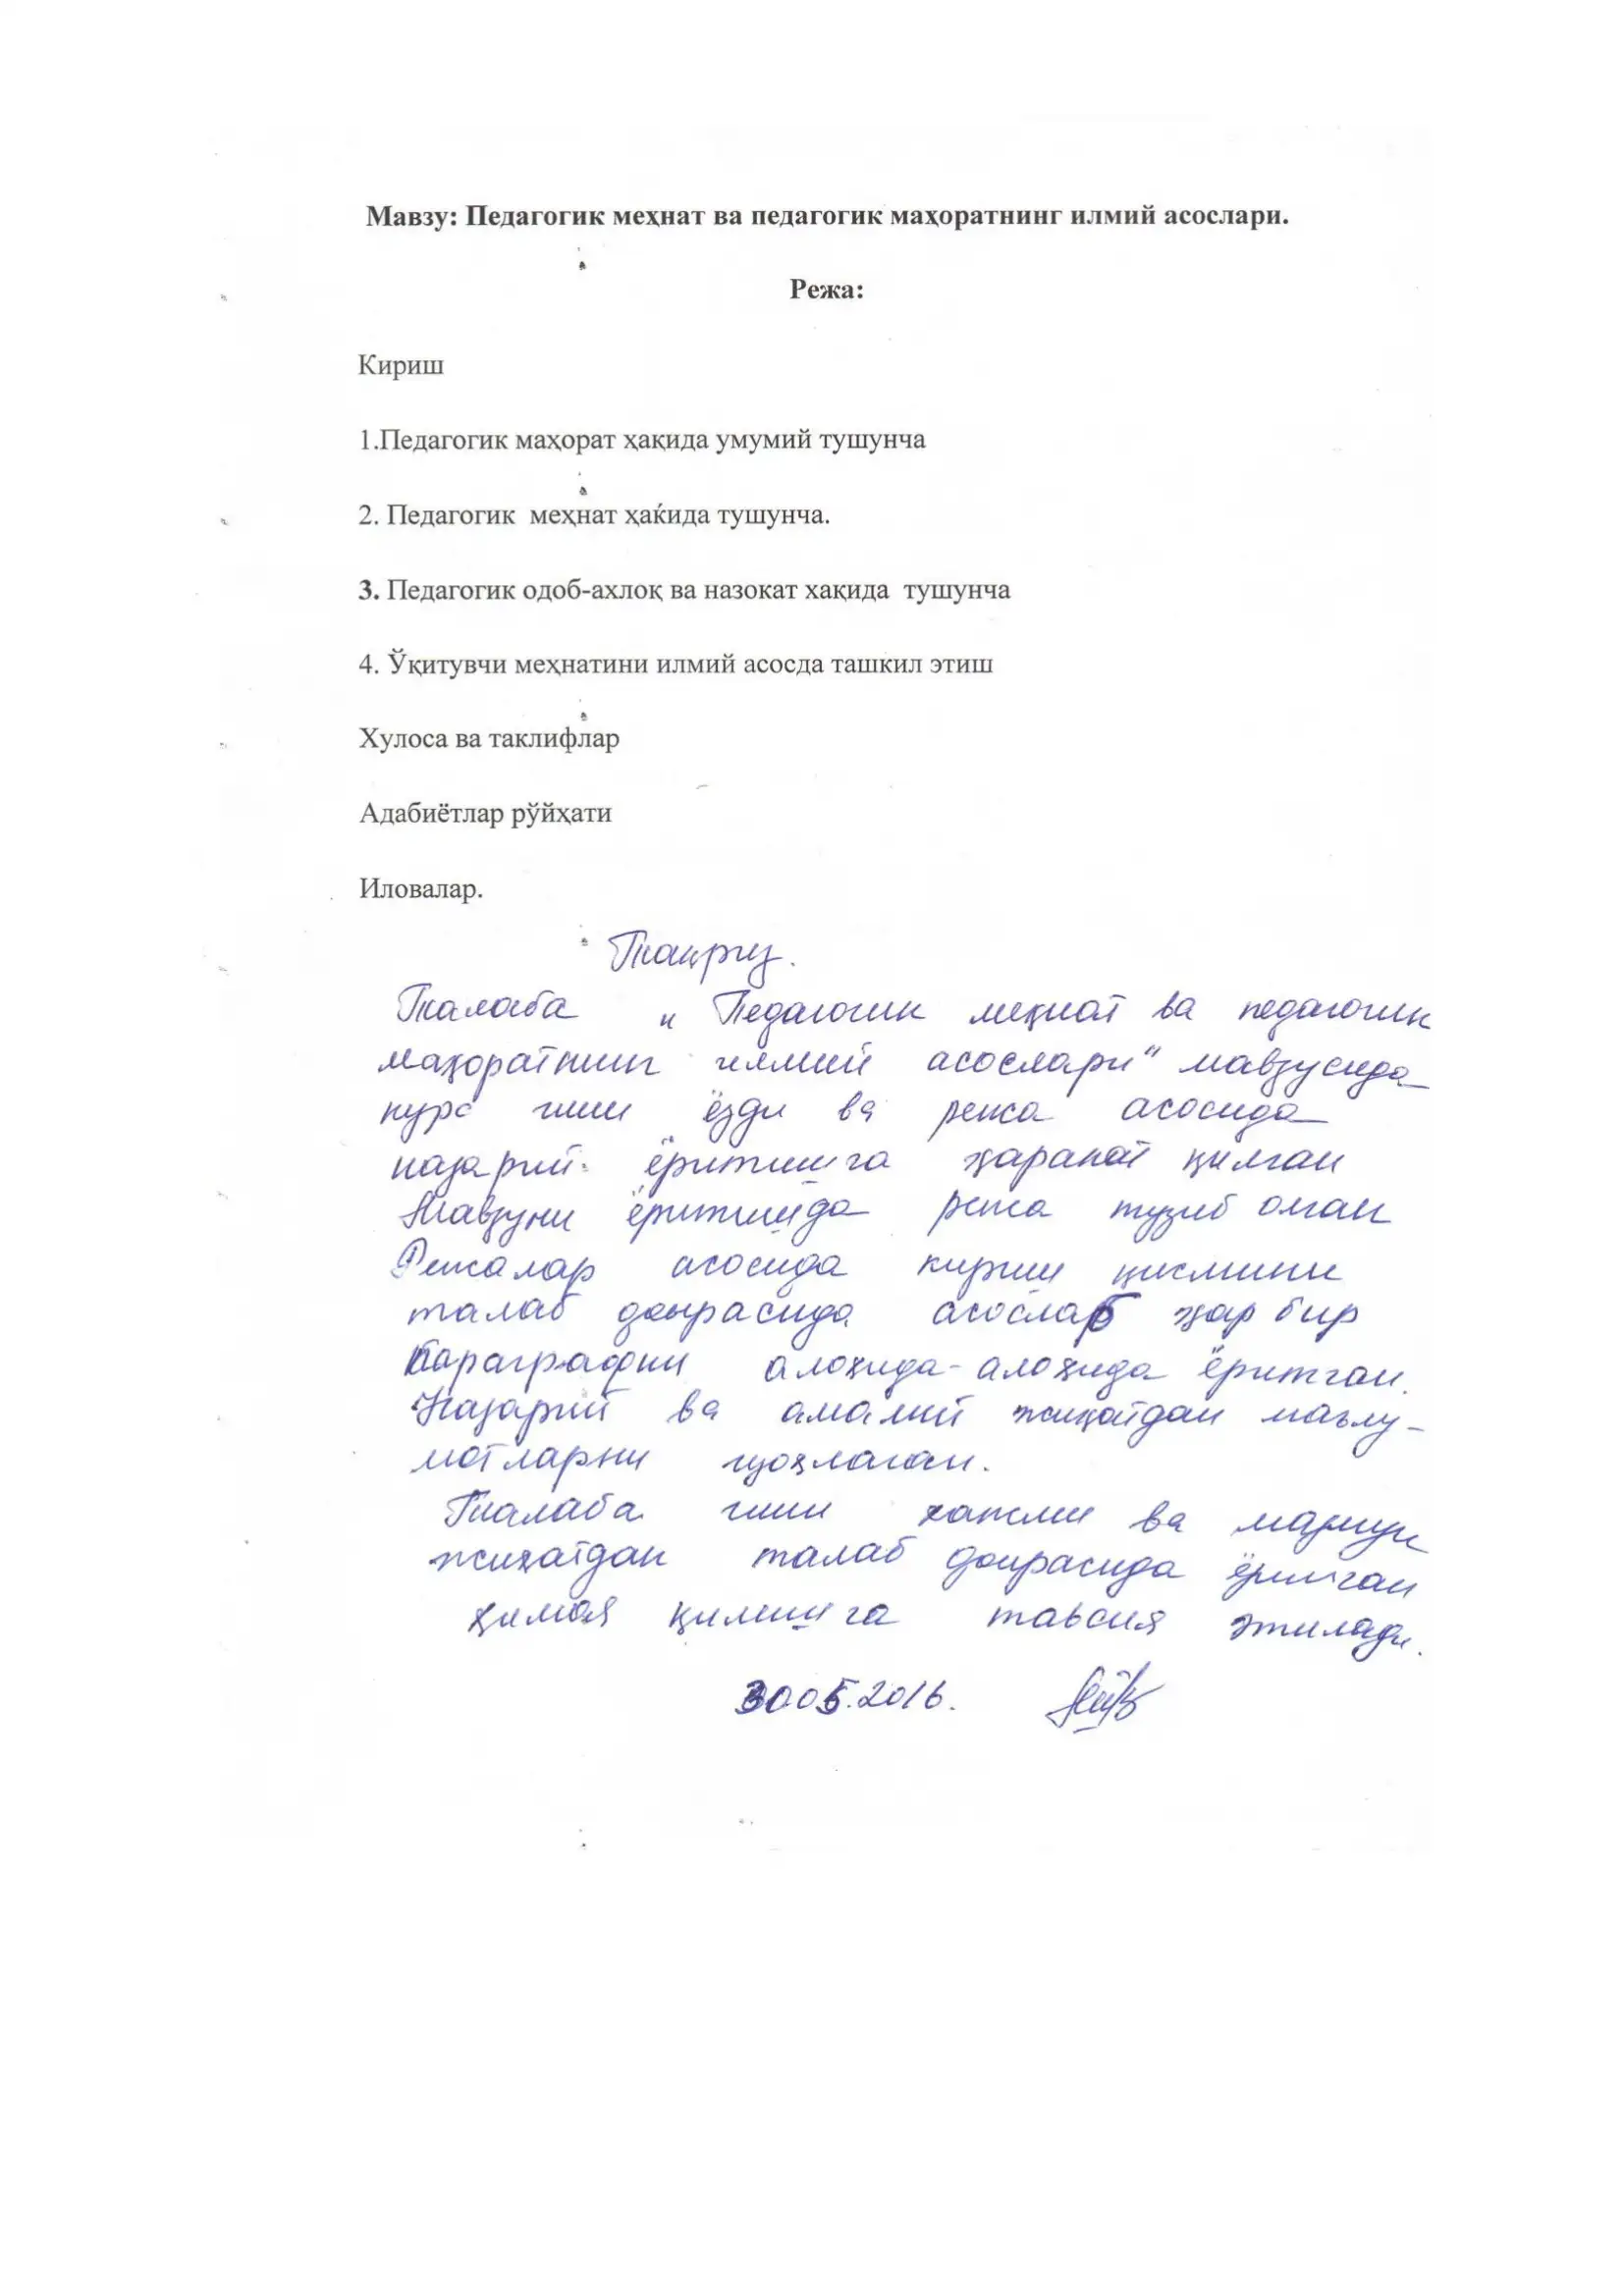 Мавзу: Педагогик меҳнат ва педагогик маҳоратнинг илмий асослари.
Режа:
Кириш
1.Педагогик маҳорат ҳақида умумий тушунча
2. Педагогик меҳнат ҳаќида тушунча.
3. Педагогик одоб-ахлоқ ва назокат хақида тушунча
4. Ўқитувчи меҳнатини илмий асосда ташкил этиш
Хулоса ва таклифлар
Адабиётлар рўйҳати
Иловалар.
Тақриз.
Талаба „Педагогик меҳнат ва педагогик
маҳоратнинг илмий асослари" мавзусида
курс иши ёзди ва режа асосида
назарий ёритишга ҳаракат қилган
Мавзуни ёритишда режа тузиб олган
Режалар асосида кириш қисмини
талаб доирасида асослаб ҳар бир
параграфни алоҳида-алоҳида ёритган.
Назарий ва амалий жиҳатдан маълу-
мотларни изоҳлаган.
Талаба иши хажми ва мазмун
жиҳатдан талаб доирасида ёритган
ҳимоя қилишга тавсия этилади.
30.05.2016.